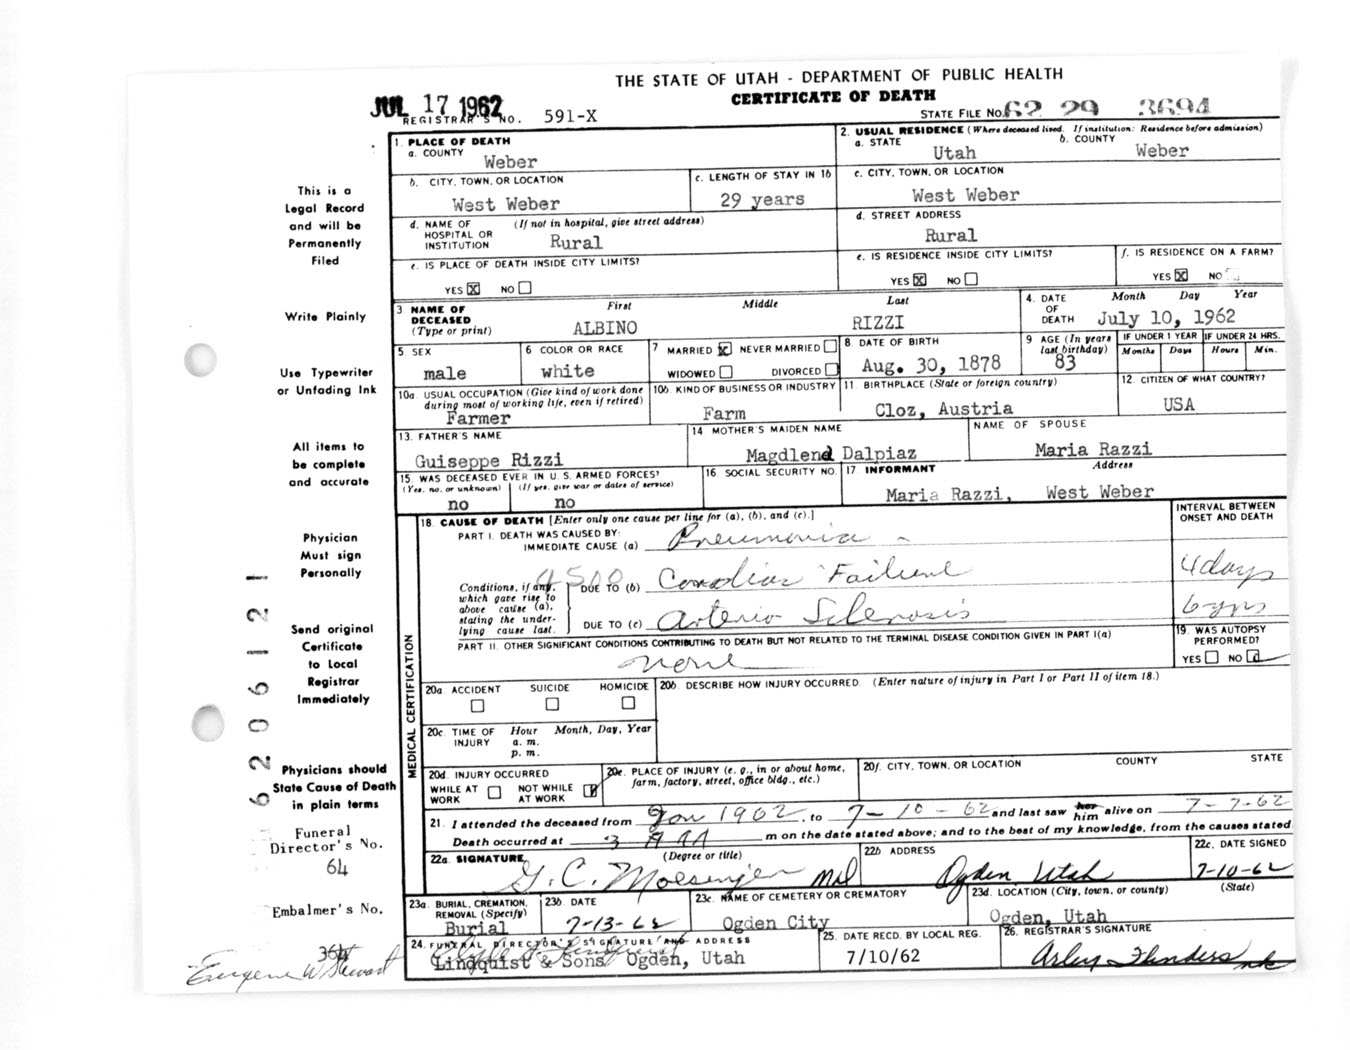 THE STATE OF UTAH - DEPARTMENT OF PUBLIC HEALTH
CERTIFICATE OF DEATH
JUL 17 1962
REGISTRAR'S NO. 591-X
STATE FILE NO. 62 29 3694
This is a
Legal Record
and will be
Permanently
Filed
Write Plainly
Use Typewriter
or Unfading Ink
All items to
be complete
and accurate
Physician
Must sign
Personally
Send original
Certificate
to Local
Registrar
Immediately
Physicians should
State Cause of Death
in plain terms
Funeral
Director's No.
64
Embalmer's No.
364
Eugene W Stewart
62206122 1
1. PLACE OF DEATH
a. COUNTY
Weber
2. USUAL RESIDENCE (Where deceased lived. If institution: Residence before admission)
a. STATE b. COUNTY
Utah Weber
b. CITY, TOWN, OR LOCATION
West Weber
c. LENGTH OF STAY IN 1b
29 years
c. CITY, TOWN, OR LOCATION
West Weber
d. NAME OF (If not in hospital, give street address)
HOSPITAL OR
INSTITUTION Rural
d. STREET ADDRESS
Rural
e. IS PLACE OF DEATH INSIDE CITY LIMITS?
YES X NO
e. IS RESIDENCE INSIDE CITY LIMITS?
YES X NO
f. IS RESIDENCE ON A FARM?
YES X NO
3 NAME OF First Middle Last
DECEASED
(Type or print) ALBINO RIZZI
4. DATE Month Day Year
OF
DEATH July 10, 1962
5 SEX
male
6 COLOR OR RACE
white
7 MARRIED X NEVER MARRIED
WIDOWED DIVORCED
8 DATE OF BIRTH
Aug. 30, 1878
9 AGE (In years
last birthday)
83
IF UNDER 1 YEAR IF UNDER 24 HRS.
Months Days Hours Min.
10a. USUAL OCCUPATION (Give kind of work done
during most of working life, even if retired)
Farmer
10b. KIND OF BUSINESS OR INDUSTRY
Farm
11 BIRTHPLACE (State or foreign country)
Cloz, Austria
12 CITIZEN OF WHAT COUNTRY?
USA
13. FATHER'S NAME
Guiseppe Rizzi
14 MOTHER'S MAIDEN NAME
Magdlend Dalpiaz
NAME OF SPOUSE
Maria Razzi
15. WAS DECEASED EVER IN U.S. ARMED FORCES?
(Yes, no, or unknown) (If yes, give war or dates of service)
no no
16. SOCIAL SECURITY NO.
17 INFORMANT Address
Maria Razzi, West Weber
MEDICAL CERTIFICATION
18. CAUSE OF DEATH [Enter only one cause per line for (a), (b), and (c).]
INTERVAL BETWEEN
ONSET AND DEATH
PART I. DEATH WAS CAUSED BY:
IMMEDIATE CAUSE (a) Pneumonia
4500
Conditions, if any,
which gave rise to
above cause (a),
stating the under-
lying cause last.
DUE TO (b) Cardiac Failure 4 days
DUE TO (c) Arterio Sclerosis 6 yrs
PART II. OTHER SIGNIFICANT CONDITIONS CONTRIBUTING TO DEATH BUT NOT RELATED TO THE TERMINAL DISEASE CONDITION GIVEN IN PART I(a)
none
19. WAS AUTOPSY
PERFORMED?
YES NO
20a. ACCIDENT SUICIDE HOMICIDE
20b. DESCRIBE HOW INJURY OCCURRED. (Enter nature of injury in Part I or Part II of item 18.)
20c. TIME OF Hour Month, Day, Year
INJURY a. m.
p. m.
20d. INJURY OCCURRED
WHILE AT NOT WHILE
WORK AT WORK
20e. PLACE OF INJURY (e. g., in or about home,
farm, factory, street, office bldg., etc.)
20f. CITY, TOWN, OR LOCATION COUNTY STATE
21. I attended the deceased from Jan 1962, to 7-10-62 and last saw her him alive on 7-7-62
Death occurred at 3 A m on the date stated above; and to the best of my knowledge, from the causes stated.
22a. SIGNATURE (Degree or title)
G. C. Moesinger MD
22b ADDRESS
Ogden Utah
22c. DATE SIGNED
7-10-62
23a. BURIAL, CREMATION,
REMOVAL (Specify)
Burial
23b. DATE
7-13-62
23c. NAME OF CEMETERY OR CREMATORY
Ogden City
23d. LOCATION (City, town, or county) (State)
Ogden, Utah
24. FUNERAL DIRECTOR'S SIGNATURE AND ADDRESS
Lindquist & Sons Ogden, Utah
25. DATE RECD. BY LOCAL REG.
7/10/62
26. REGISTRAR'S SIGNATURE
Arley Flinders